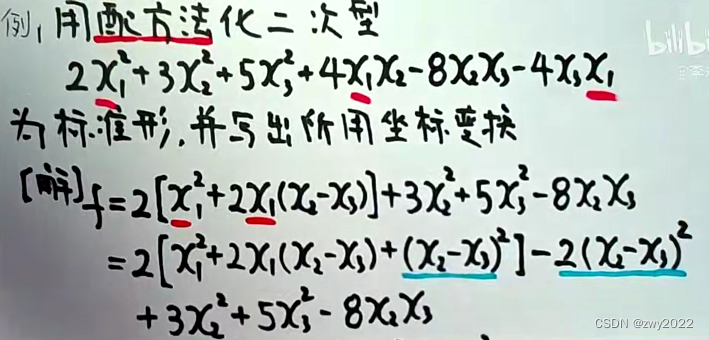 例,用配方法化二次型
2x₁²+3x₂²+5x₃²+4x₁x₂-8x₂x₃-4x₃x₁
为标准形,并写出所用坐标变换
[解] f=2[x₁²+2x₁(x₂-x₃)]+3x₂²+5x₃²-8x₂x₃
=2[x₁²+2x₁(x₂-x₃)+(x₂-x₃)²]-2(x₂-x₃)²
+3x₂²+5x₃²-8x₂x₃
bilibili
CSDN @zwy2022